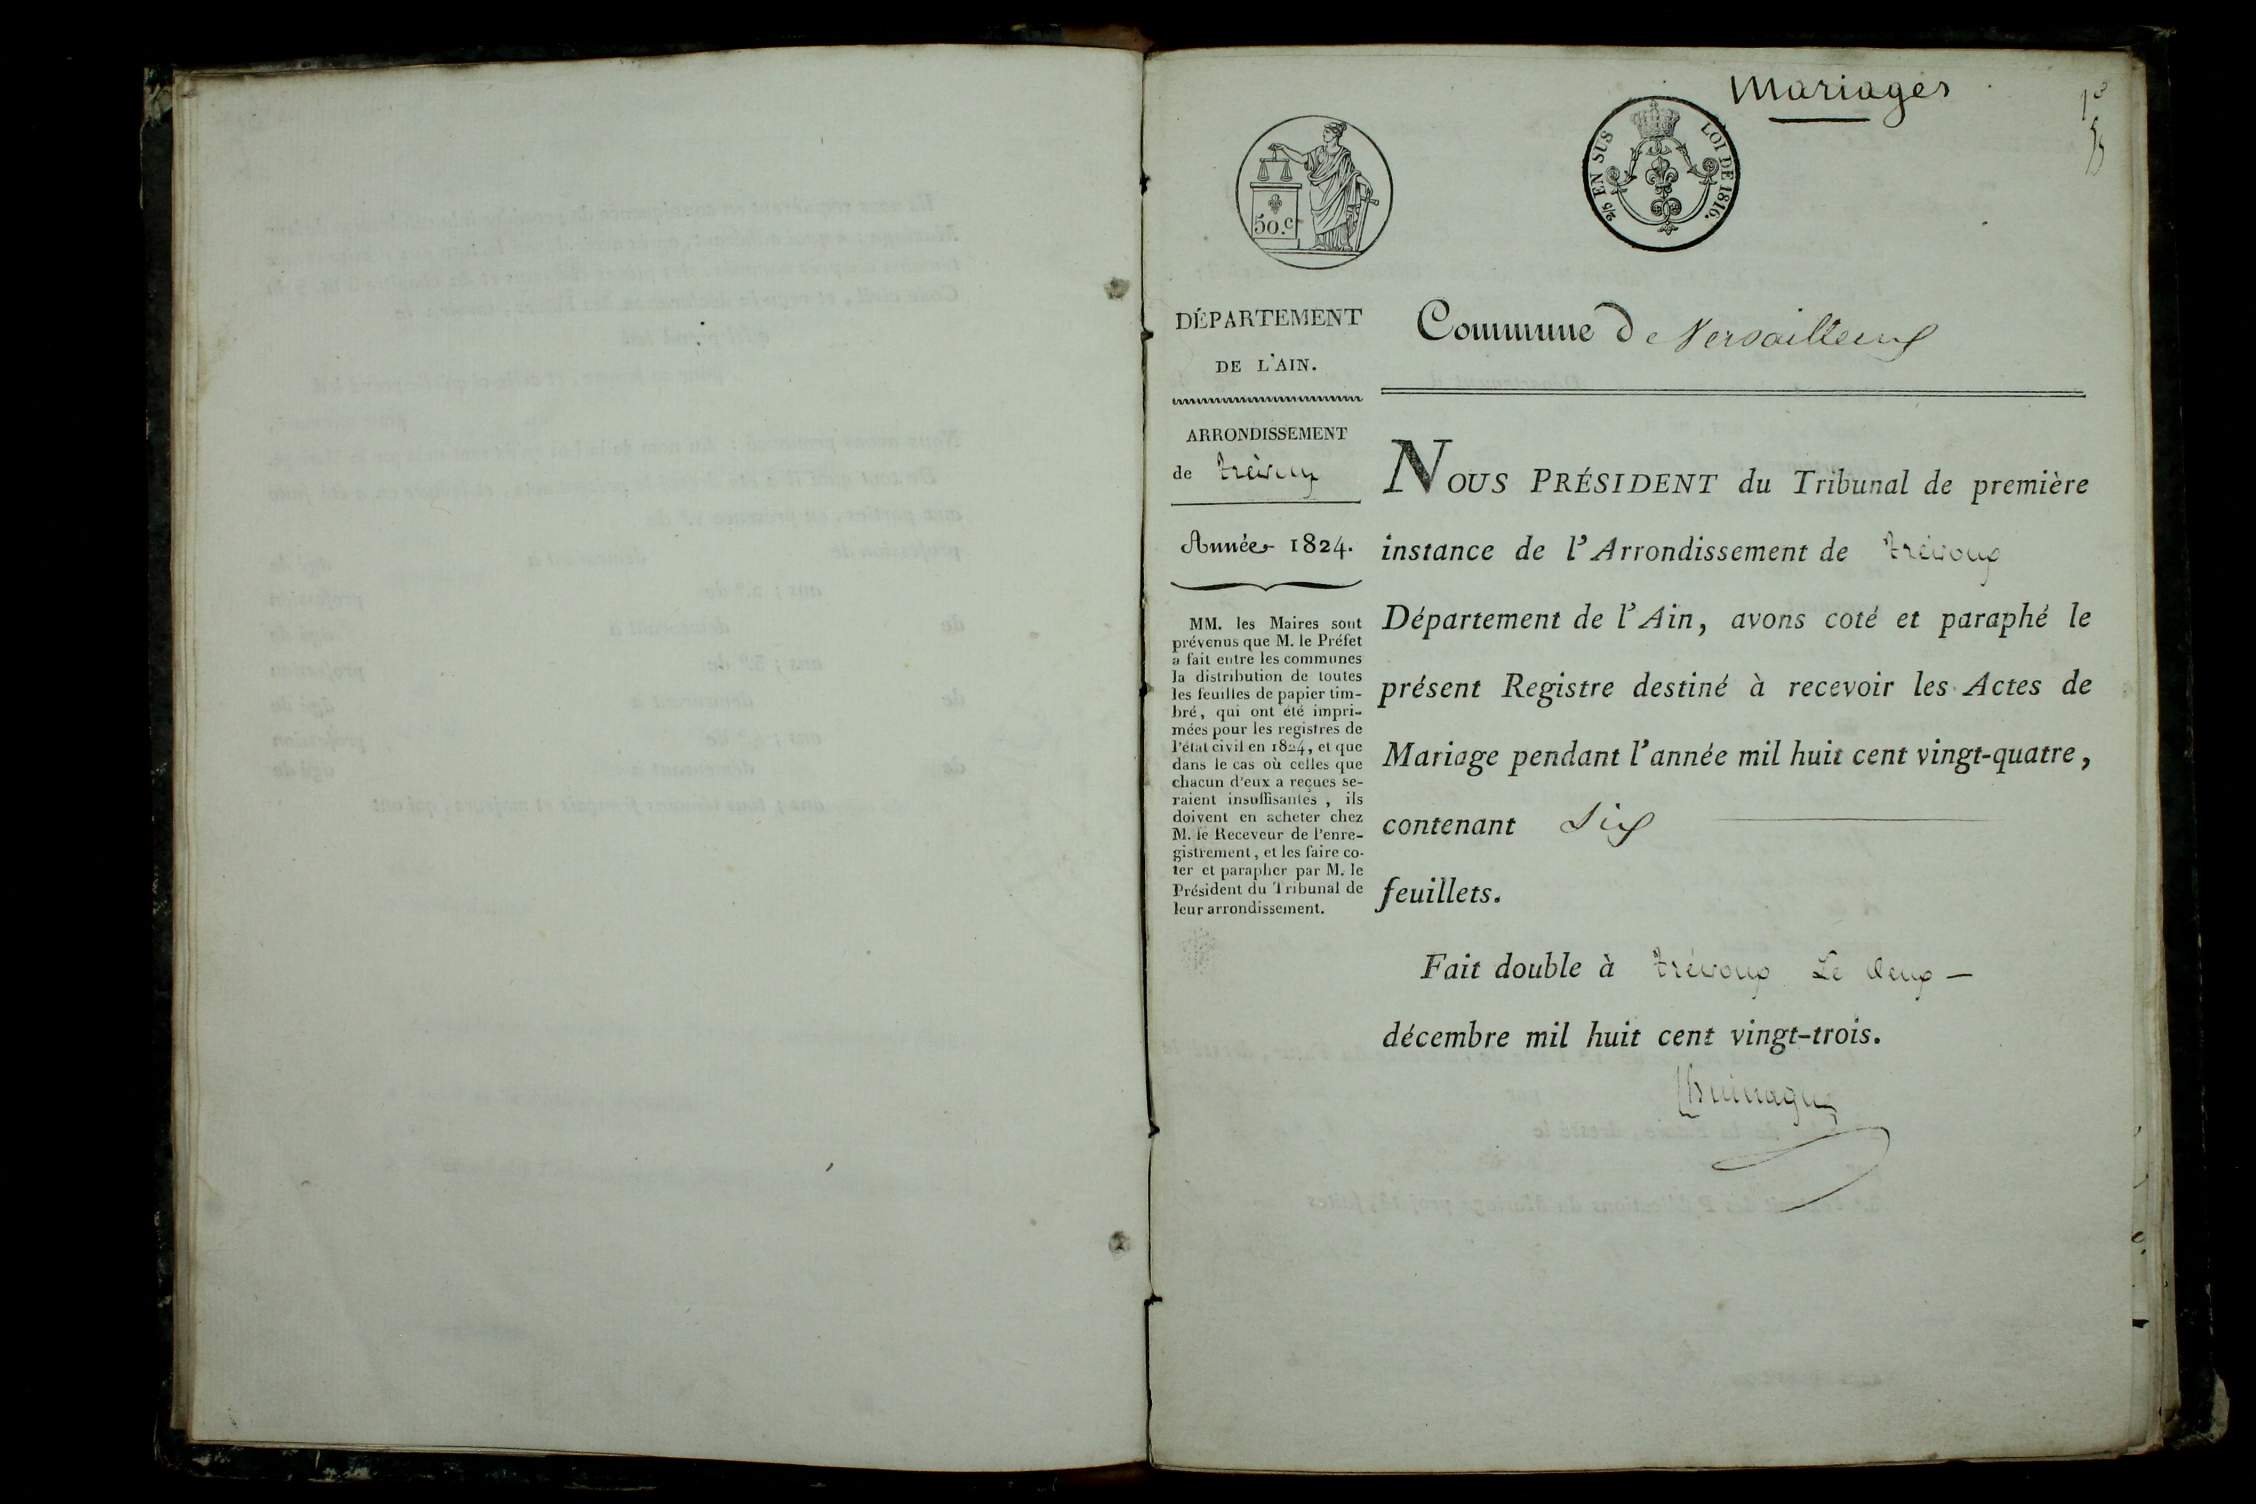 Mariages
1e
50.c
2/5 EN SUS LOI DE 1816.
DÉPARTEMENT
DE L'AIN.
ARRONDISSEMENT
de trévoux
Année 1824.
MM. les Maires sont
prévenus que M. le Préfet
a fait entre les communes
la distribution de toutes
les feuilles de papier tim-
bré, qui ont été impri-
mées pour les registres de
l'état civil en 1824, et que
dans le cas où celles que
chacun d'eux a reçues se-
raient insuffisantes, ils
doivent en acheter chez
M. le Receveur de l'enre-
gistrement, et les faire co-
ter et parapher par M. le
Président du Tribunal de
leur arrondissement.
Commune de Versailleux
NOUS PRÉSIDENT du Tribunal de première
instance de l'Arrondissement de trévoux
Département de l'Ain, avons coté et paraphé le
présent Registre destiné à recevoir les Actes de
Mariage pendant l'année mil huit cent vingt-quatre,
contenant Six
feuillets.
Fait double à trévoux Le deux —
décembre mil huit cent vingt-trois.